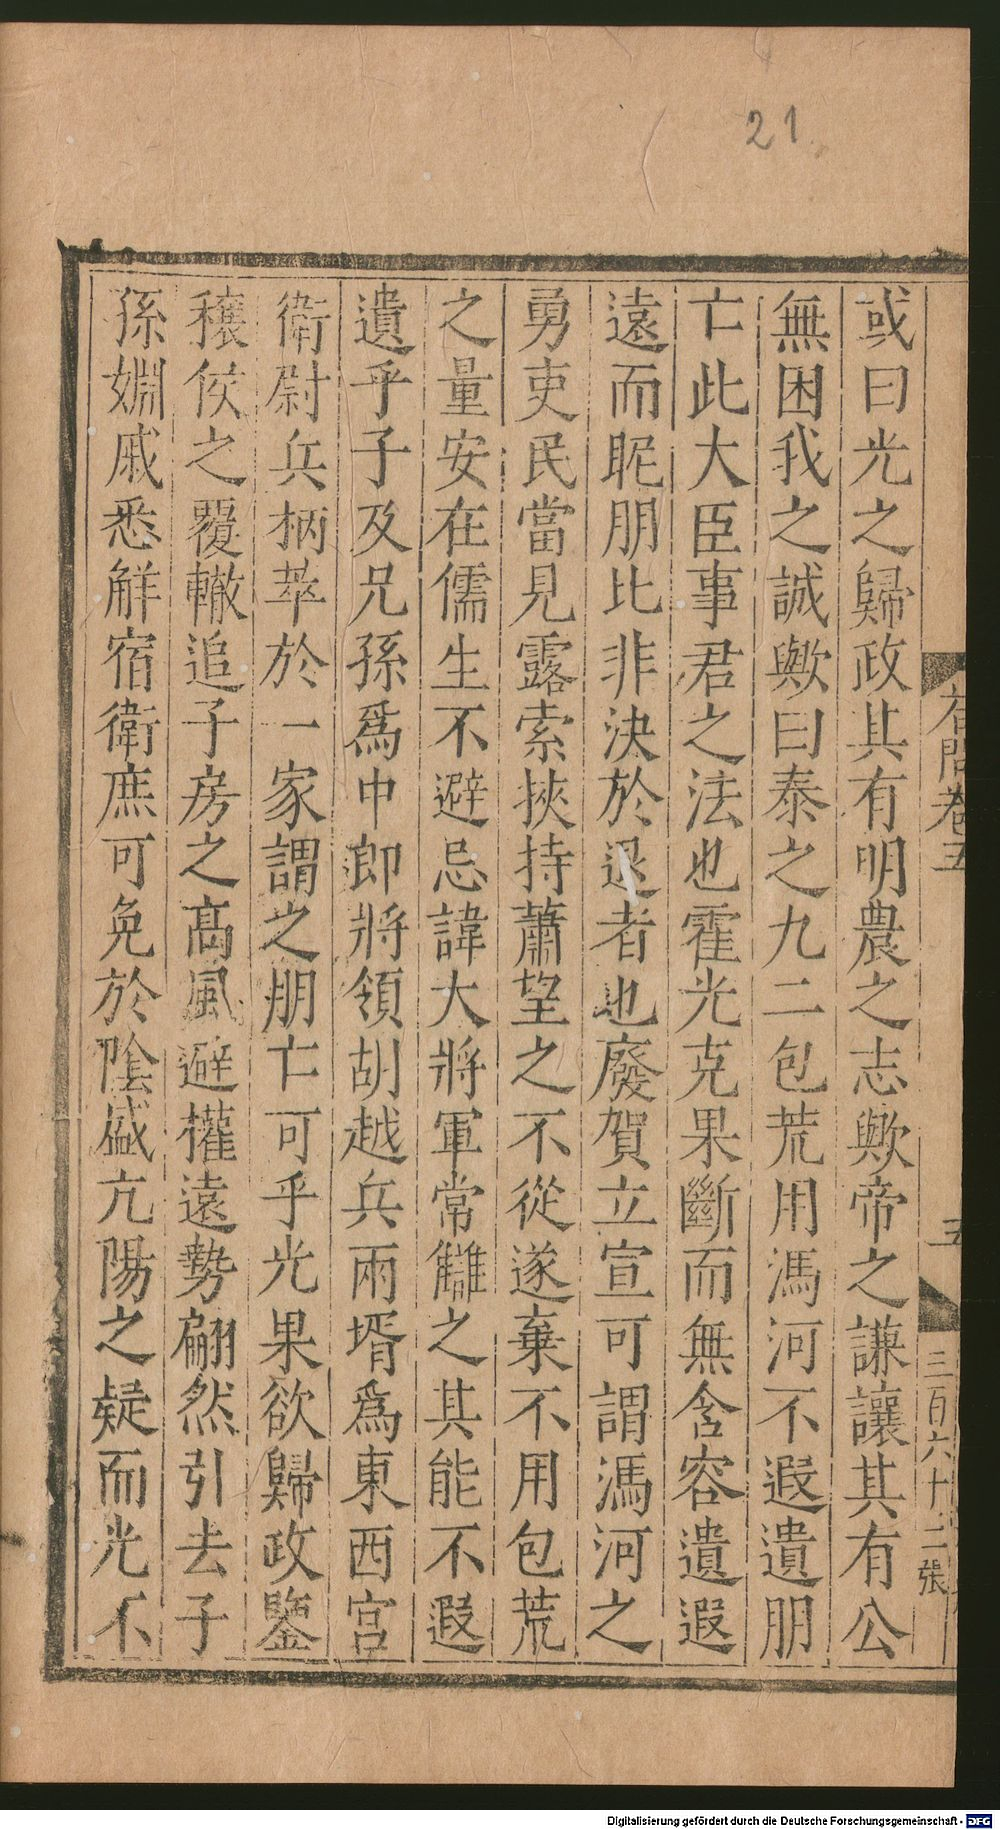 21
或曰光之歸政其有明農之志歟帝之謙讓其有公
無困我之誠歟曰泰之九二包荒用馮河不遐遺朋
亡此大臣事君之法也霍光克果斷而無含容遺遐
遠而昵朋比非決於退者也廢賀立宣可謂馮河之
勇吏民當見露索挾持蕭望之不從遂棄不用包荒
之量安在儒生不避忌諱大將軍常讎之其能不遐
遺乎子及兄孫爲中郎將領胡越兵兩壻爲東西宮
衛尉兵柄萃於一家謂之朋亡可乎光果欲歸政鑒
穰侯之覆轍追子房之高風避權遠勢翩然引去子
孫婣戚悉解宿衛庶可免於陰盛亢陽之疑而光不
卷五
五
三百六十二張
Digitalisierung gefördert durch die Deutsche Forschungsgemeinschaft - DFG